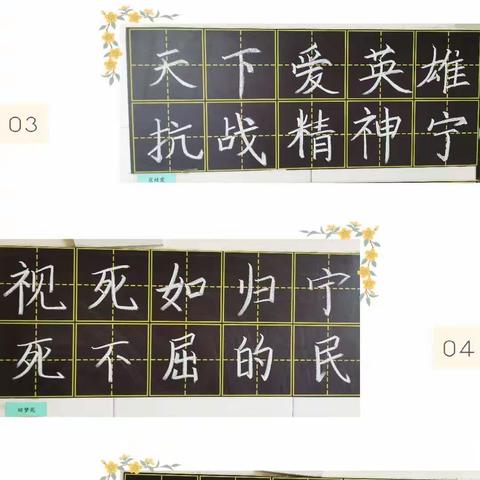 天下爱英雄
03
抗战精神宁
视死如归宁
死不屈的民
04